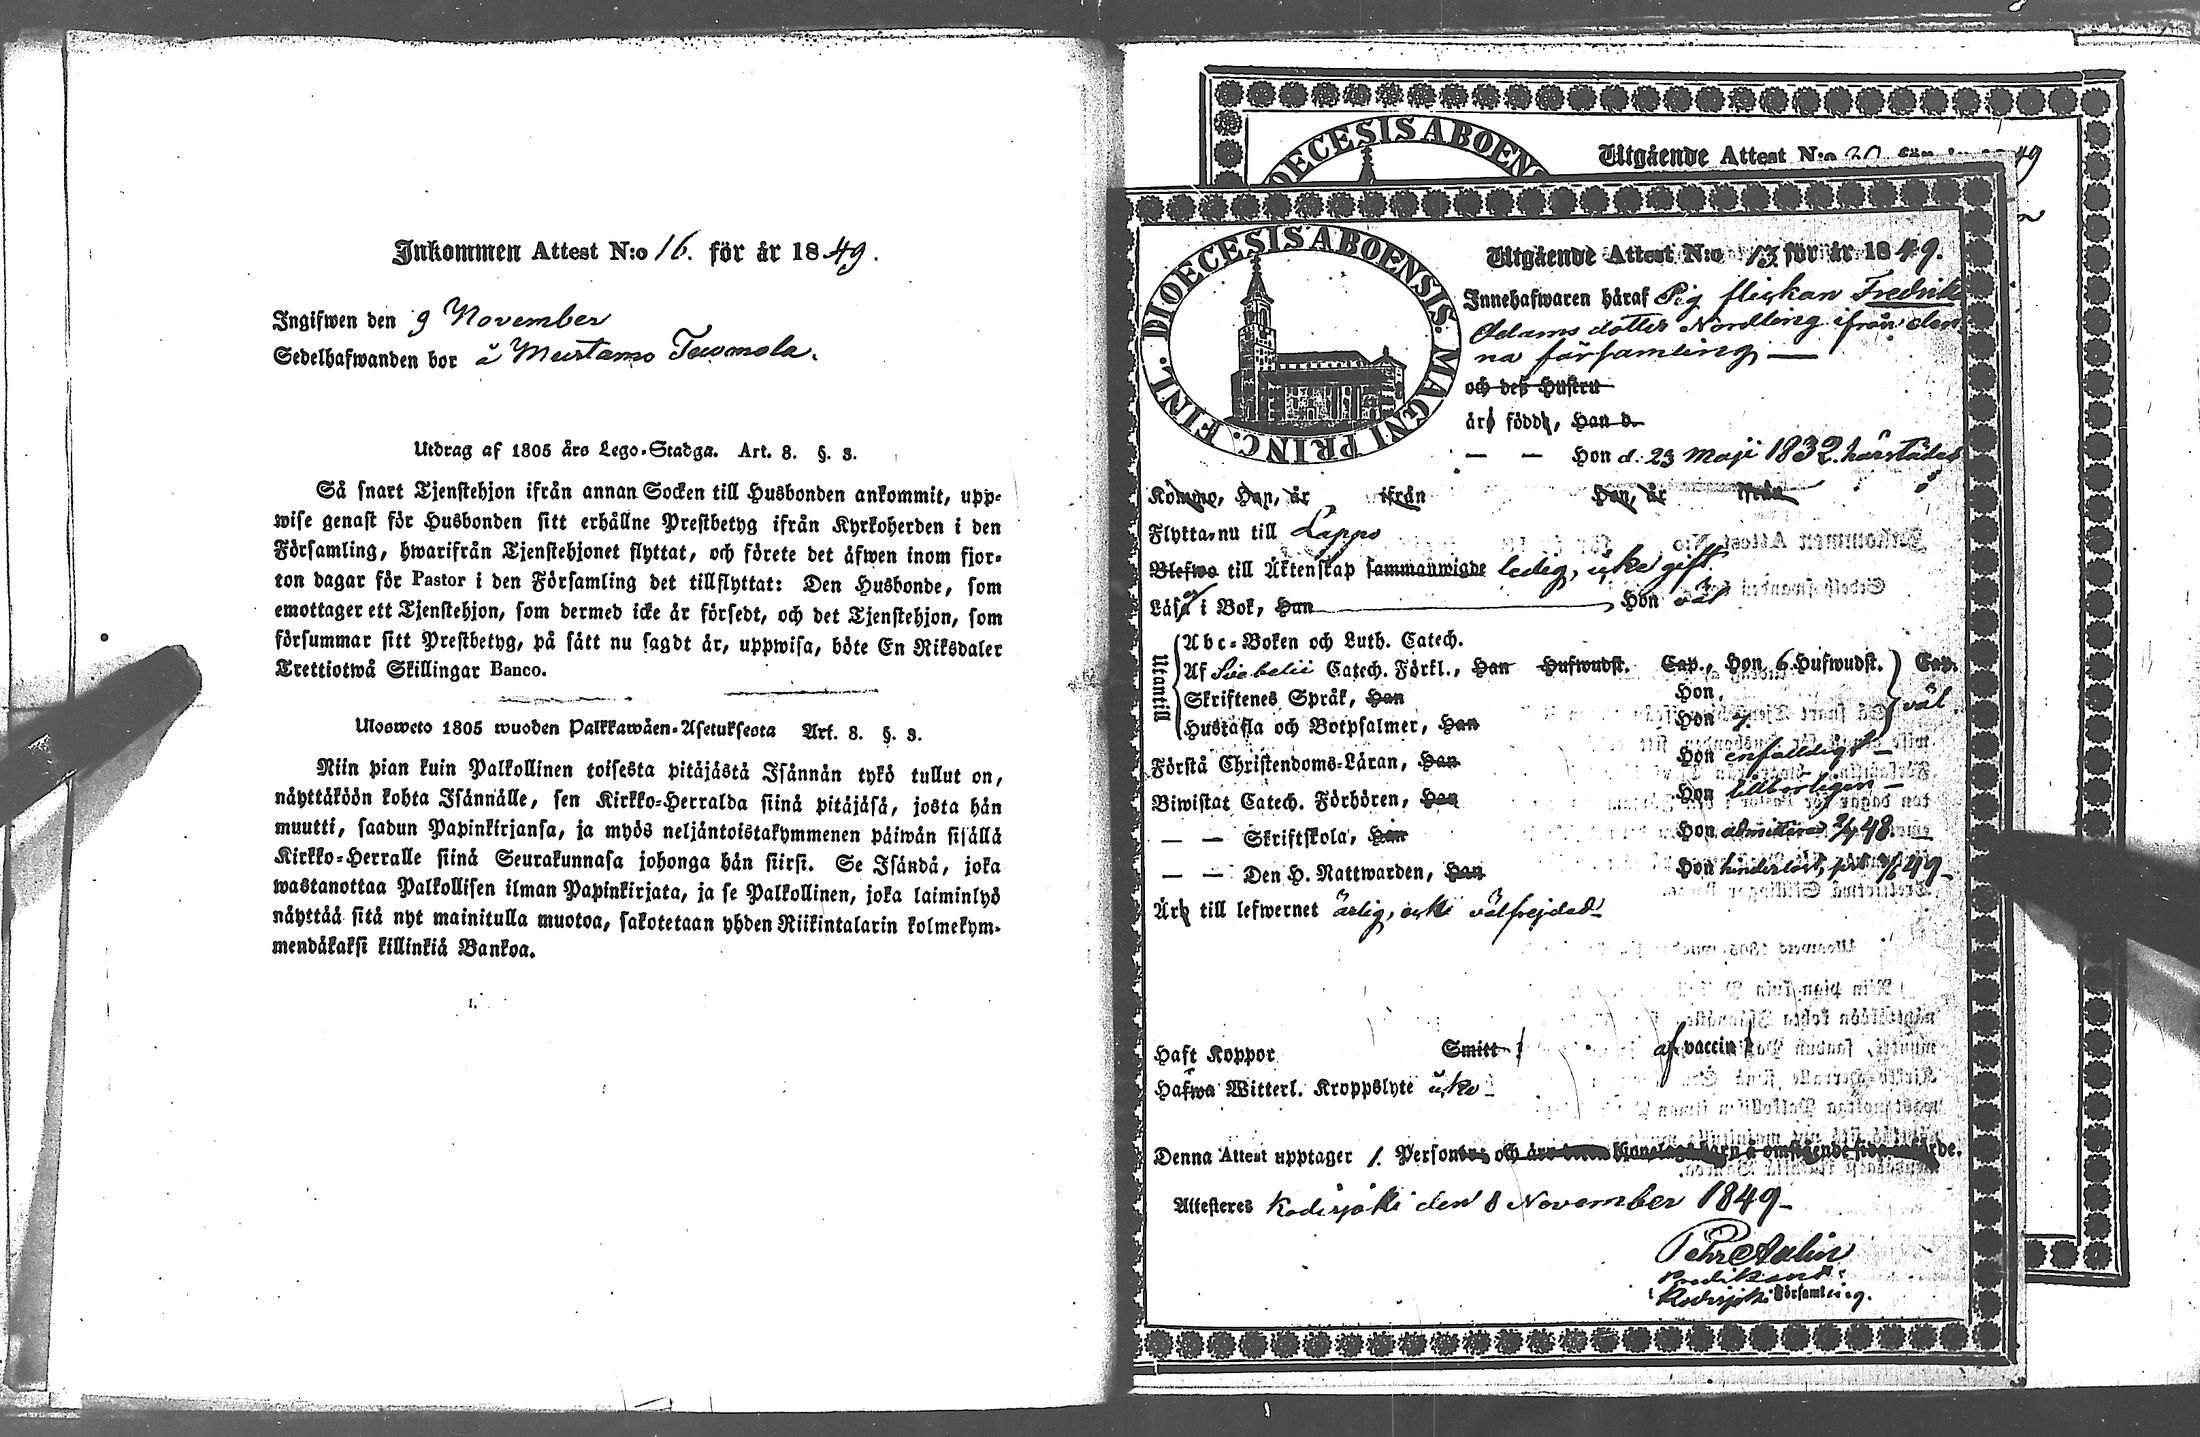 Inkommen Attest N:o 16. för år 1849.
Ingifwen den 9 November
Sedelhafwanden bor å Murtamo Tuomola.
Utdrag af 1805 års Lego-Stadga. Art. 8. §. 3.
Så snart Tjenstehjon ifrån annan Socken till Husbonden ankommit, upp-
wise genast för Husbonden sitt erhållne Prestbetyg ifrån Kyrkoherden i den
Församling, hwarifrån Tjenstehjonet flyttat, och förete det äfwen inom fjor-
ton dagar för Pastor i den Församling det tillflyttat: Den Husbonde, som
emottager ett Tjenstehjon, som dermed icke är försedt, och det Tjenstehjon, som
försummar sitt Prestbetyg, på sätt nu sagdt är, uppwisa, böte En Riksdaler
Trettiotwå Skillingar Banco.
Ulosweto 1805 wuoden Palkkawäen-Asetuksesta Art. 8. §. 3.
Niin pian kuin Palkollinen toisesta pitäjästä Isännän tykö tullut on,
näyttäköön kohta Isännälle, sen Kirkko-Herralda siinä pitäjäsä, josta hän
muutti, saadun Papinkirjansa, ja myös neljäntoistakymmenen päiwän sisällä
Kirkko-Herralle siinä Seurakunnasa johonga hän siirsi. Se Isändä, joka
wastanottaa Palkollisen ilman Papinkirjata, ja se Palkollinen, joka laiminlyö
näyttää sitä nyt mainitulla muotoa, sakotetaan yhden Riikintalarin kolmekym-
mendäkaksi killinkiä Bankoa.
1.
DIOECESIS ABOEN
Utgående Attest N:o 20 49
DIOECESIS ABOENSIS. MAGNI PRINC. FINL.
Utgående Attest N:o 13 för år 1849.
Innehafwaren häraf Pig flickan Fredrik
Adams dotter Nordling ifrån den
na församling —
och deß Hustru
äro födde, Han d.
— — Hon d. 23 Maji 1832. härstädes
Kommo, Han, år ifrån Hon, år ifrån
Flytta nu till Lappo
Blefwo till Äktenskap sammanwigde ledig, icke gift.
Läsa i Bok, Han Hon väl
Utantill
Abc-Boken och Luth. Catech.
Af Svebelii Catech. Förkl., Han Hufwudst. Cap., Hon 6 Hufwudst. Cap.
Skriftenes Språk, Han Hon väl
Hustafla och Botpsalmer, Han Hon
Förstå Christendoms-Läran, Han Hon enfaldigt —
Biwistat Catech. Förhören, Han Hon tillbörligen —
— — Skriftskola, Han Hon admitterad 48.
— — Den H. Nattwarden, Han Hon hinderlöst, 49 —
Äro till lefwernet ärlig, och välfrejdad —
Haft Koppor Smitt af vaccin
Hafwa Witterl. Kroppslyte icke —
Denna Attest upptager 1. Personer och äro
Attesteres Kodisjoki den 8 November 1849 —
Pehr Aulin
Predikant
i Kodisjoki Församling.